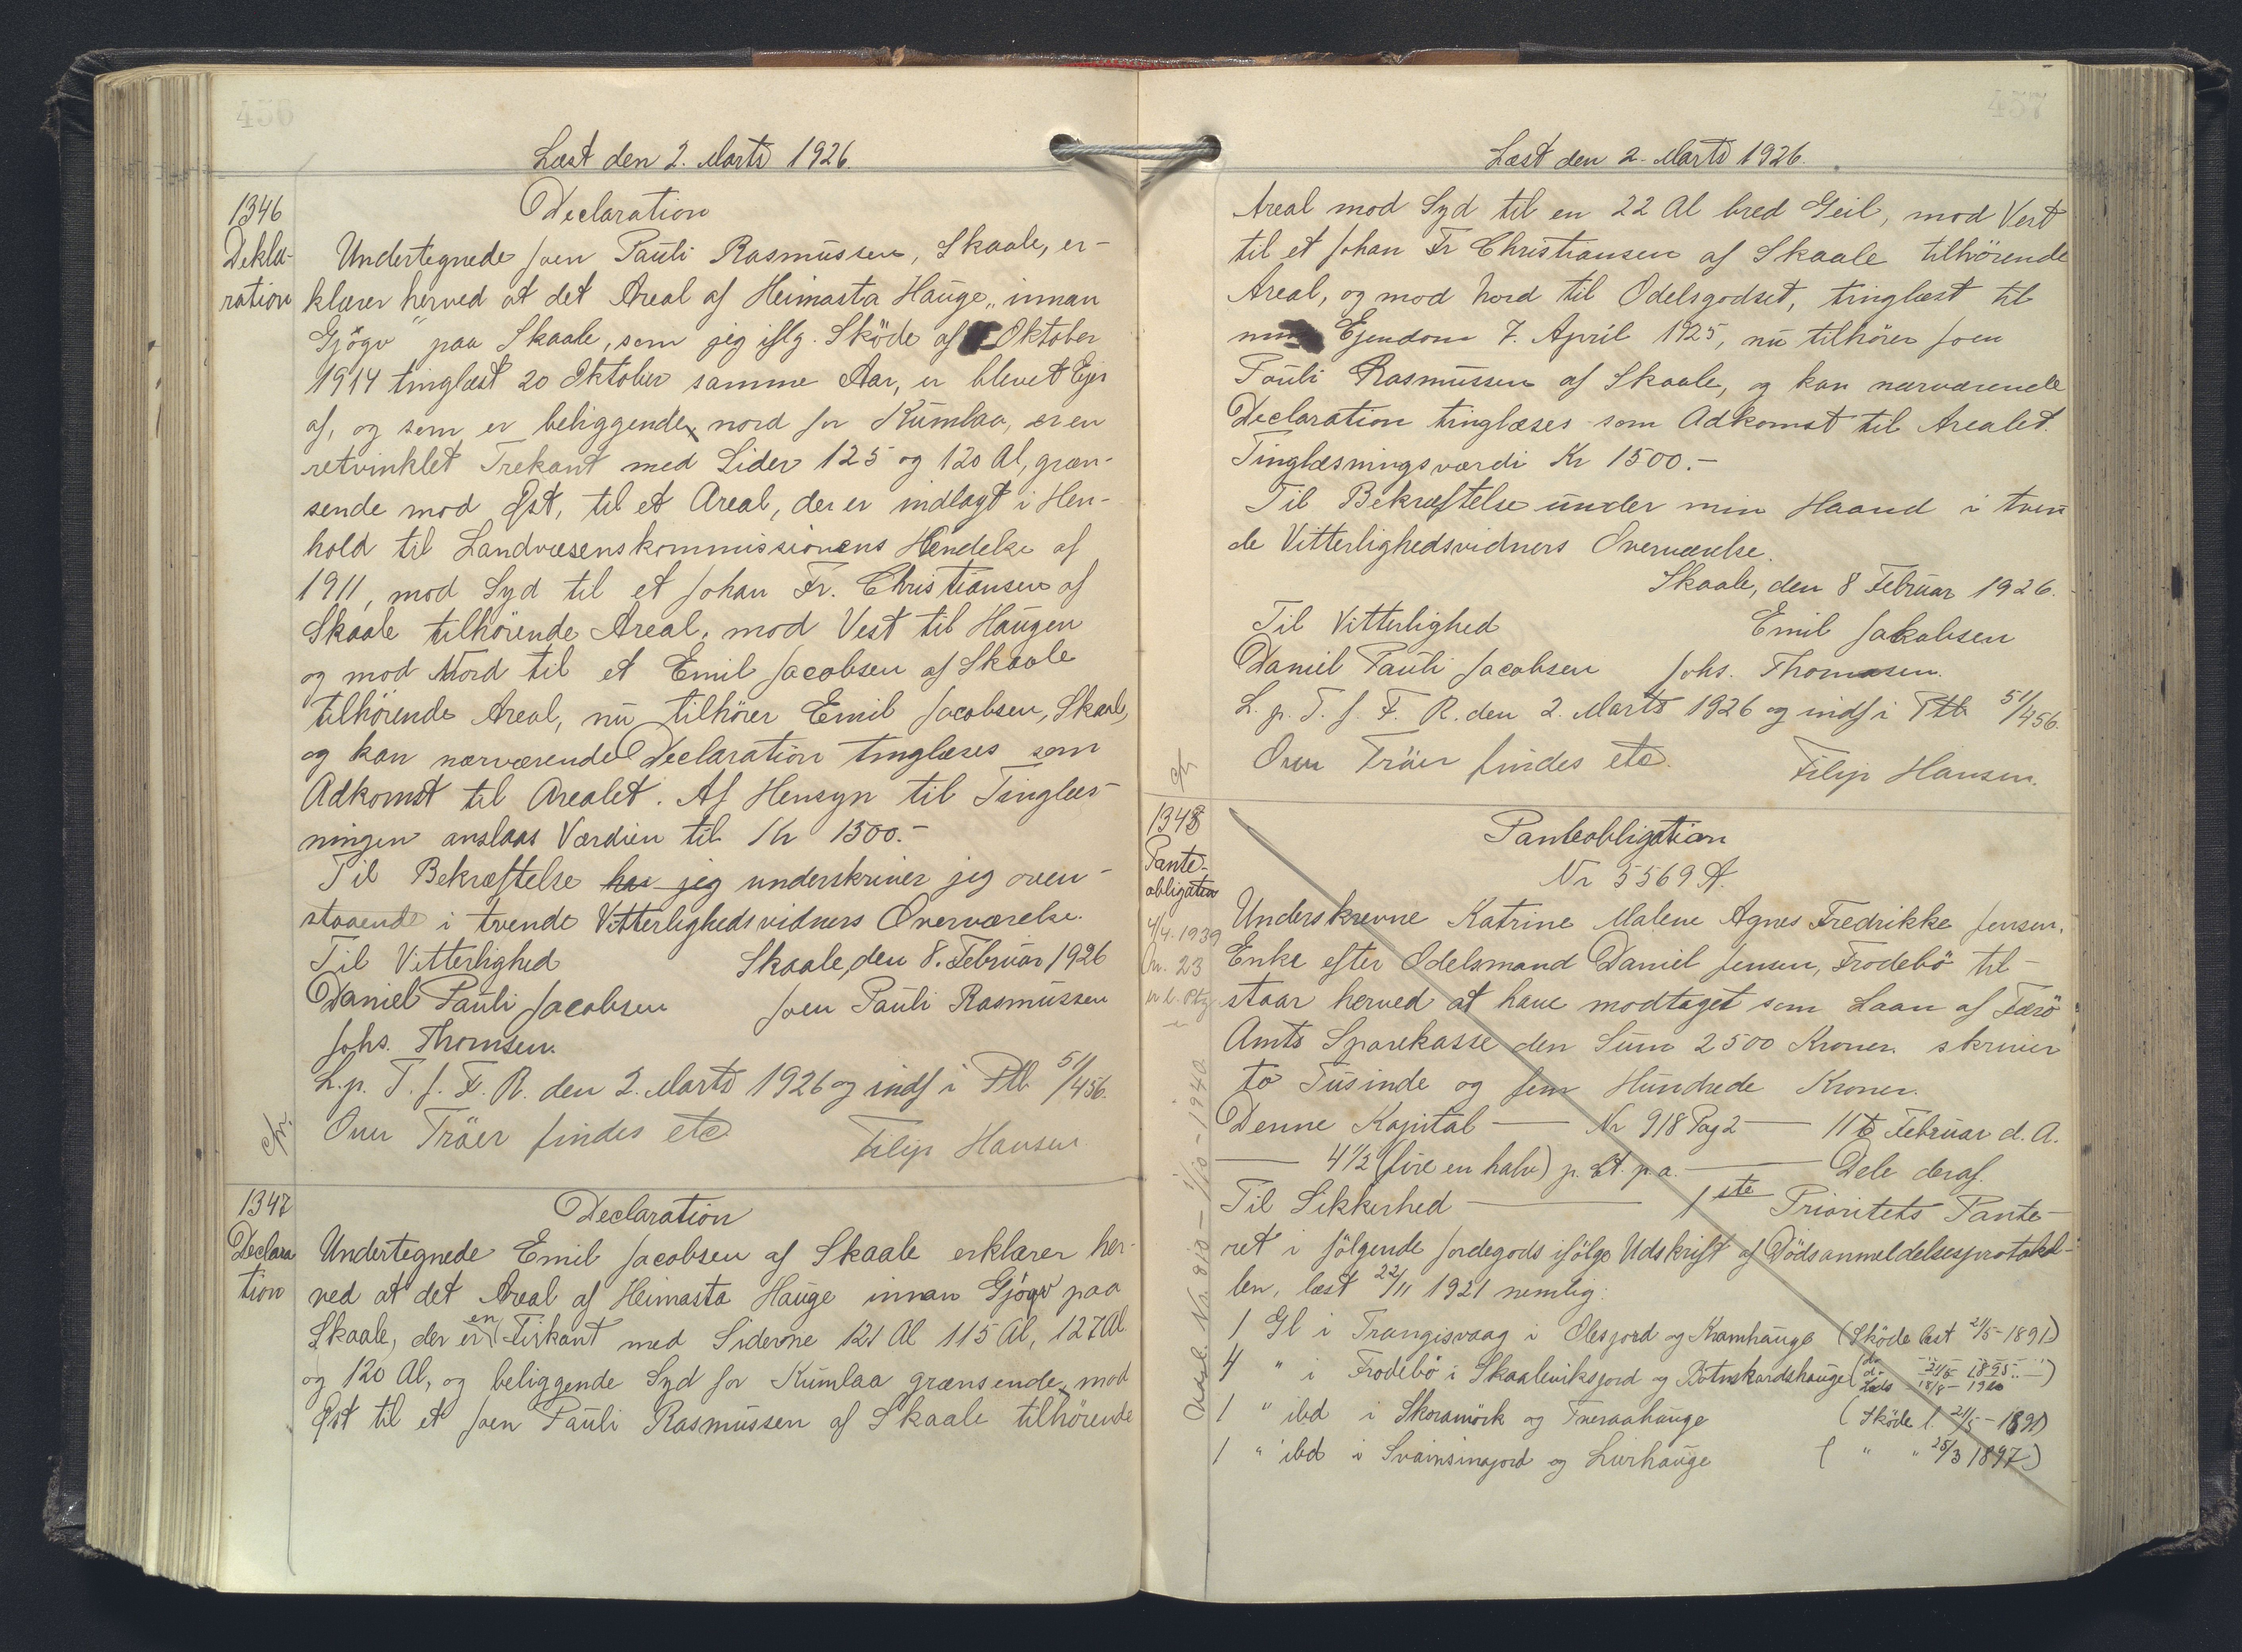 456
Læst den 2. Marts 1926.
1346
Dekla-
ration
Declaration
Undertegnede Joen Pauli Rasmussen, Skaale, er-
klærer herved at det Areal af Heimasta Hauge „innan
Gjógv" paa Skaale, som jeg iflg. Sköde af Oktober
1914 tinglæst 20 Oktober samme Aar, er blevet Ejer
af, og som er beliggende nord for Kumlaa, er en
retvinklet Trekant med Sider 125 og 120 Al, græn-
sende mod Øst, til et Areal, der er indlagt i Hen-
hold til Landvæsenskommissionens Kendelse af
1911, mod Syd til et Johan Fr. Christiansen af
Skaale tilhörende Areal, mod Vest til Haugen
og mod Nord til et Emil Jacobsen af Skaale
tilhörende Areal, nu tilhörer Emil Jacobsen, Skaale,
og kan nærværende Declaration tinglæses som
Adkomst til Arealet. Af Hensyn til Tinglæs-
ningen anslaas Værdien til Kr 1500.-
Til Bekræftelse har jeg underskriver jeg oven-
staaende i tvende Vitterlighedsvidners Overværelse.
Til Vitterlighed Skaale, den 8. Februar 1926
Daniel Pauli Jacobsen Joen Pauli Rasmussen
Johs. Thomsen.
L. p. T. f. F. R. den 2. Marts 1926 og indf i Ptb 51/456.
Ouu Tröer findes etc. Filip Hansen
1347
Declara
tion
Declaration
Undertegnede Emil Jacobsen af Skaale erklærer her-
ved at det Areal af Heimasta Hauge innan Gjógv paa
Skaale, der er en Firkant med Siderne 121 Al 115 Al, 127 Al
og 120 Al, og beliggende Syd for Kumlaa grænsende mod
Øst til et Joen Pauli Rasmussen af Skaale tilhörende
457
Læst den 2. Marts 1926.
Areal mod Syd til en 22 Al bred Geil, mod Vest
til et Johan Fr Christiansen af Skaale tilhörende
Areal, og mod Nord til Odelsgodset, tinglæst til
min Ejendom 7. April 1925, nu tilhörer Joen
Pauli Rasmussen af Skaale, og kan nærværende
Declaration tinglæses som Adkomst til Arealet.
Tinglæsningsværdi Kr 1500.-
Til Bekræftelse under min Haand i tven
de Vitterlighedsvidners Overværelse.
Skaale, den 8 Februar 1926.
Til Vitterlighed Emil Jakobsen
Daniel Pauli Jacobsen Johs. Thomasen.
L. p. T. f. F. R. den 2. Marts 1926 og indf i Ptb 51/456.
Ouu Tröer findes etc. Filip Hansen.
1348
Pante-
obligation
4/4-1939
Nr. 23
Panteobligation
Nr 5569 A.
Underskrevne Katrine Malene Agnes Fredrikke Jensen,
Enke efter Odelsmand Daniel Jensen, Frodebö til-
staar herved at have modtaget som Laan af Færö
Amts Sparekasse den Sum 2500 Kroner skriver
to Tusinde og fem Hundrede Kroner.
Denne Kapital — Nr 918 Pag 2 — 11 Februar d. A.
— 4 1/2 (fire en halv) p. Ct. p a. — Dele deraf.
Til Sikkerhed — 1ste Prioritets Pante-
ret i fölgende Jordegods ifölge Udskrift af Dödsanmeldelsesprotokol-
len, læst 22/11 1921 nemlig:
1 Gl i Trangisvaag i Olesjord og Kramhauge (Sköde læst 21/5-1891)
4 " i Frodebö i Skaaleviksjord og Botnskardshauge (do
1 " ibd i Skoramörk og Tneraahauge (Sköde l. 21/5-1891)
1 " ibd i Svainsinajord og Lurhauge ( " " 25/3 1897)